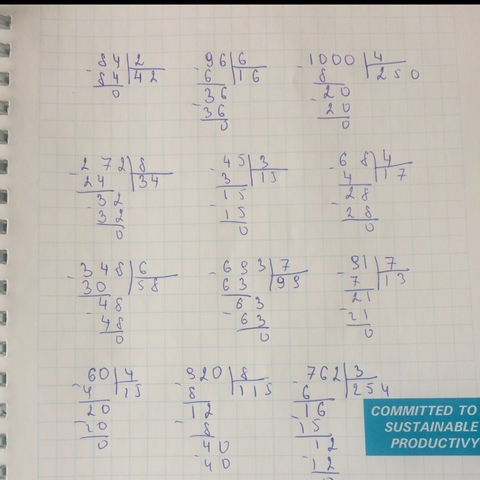 84 2
- 84 42
0
96 6
- 6 16
36
- 36
0
1000 4
- 8 250
20
- 20
0
272 8
- 24 34
32
- 32
0
45 3
- 3 15
15
- 15
0
68 4
- 4 17
28
- 28
0
348 6
- 30 58
48
- 48
0
693 7
- 63 99
63
- 63
0
91 7
- 7 13
21
- 21
0
60 4
- 4 15
20
- 20
0
920 8
- 8 115
12
- 8
40
- 40
762 3
- 6 254
16
- 15
12
- 12
0
COMMITTED TO
SUSTAINABLE
PRODUCTIVY